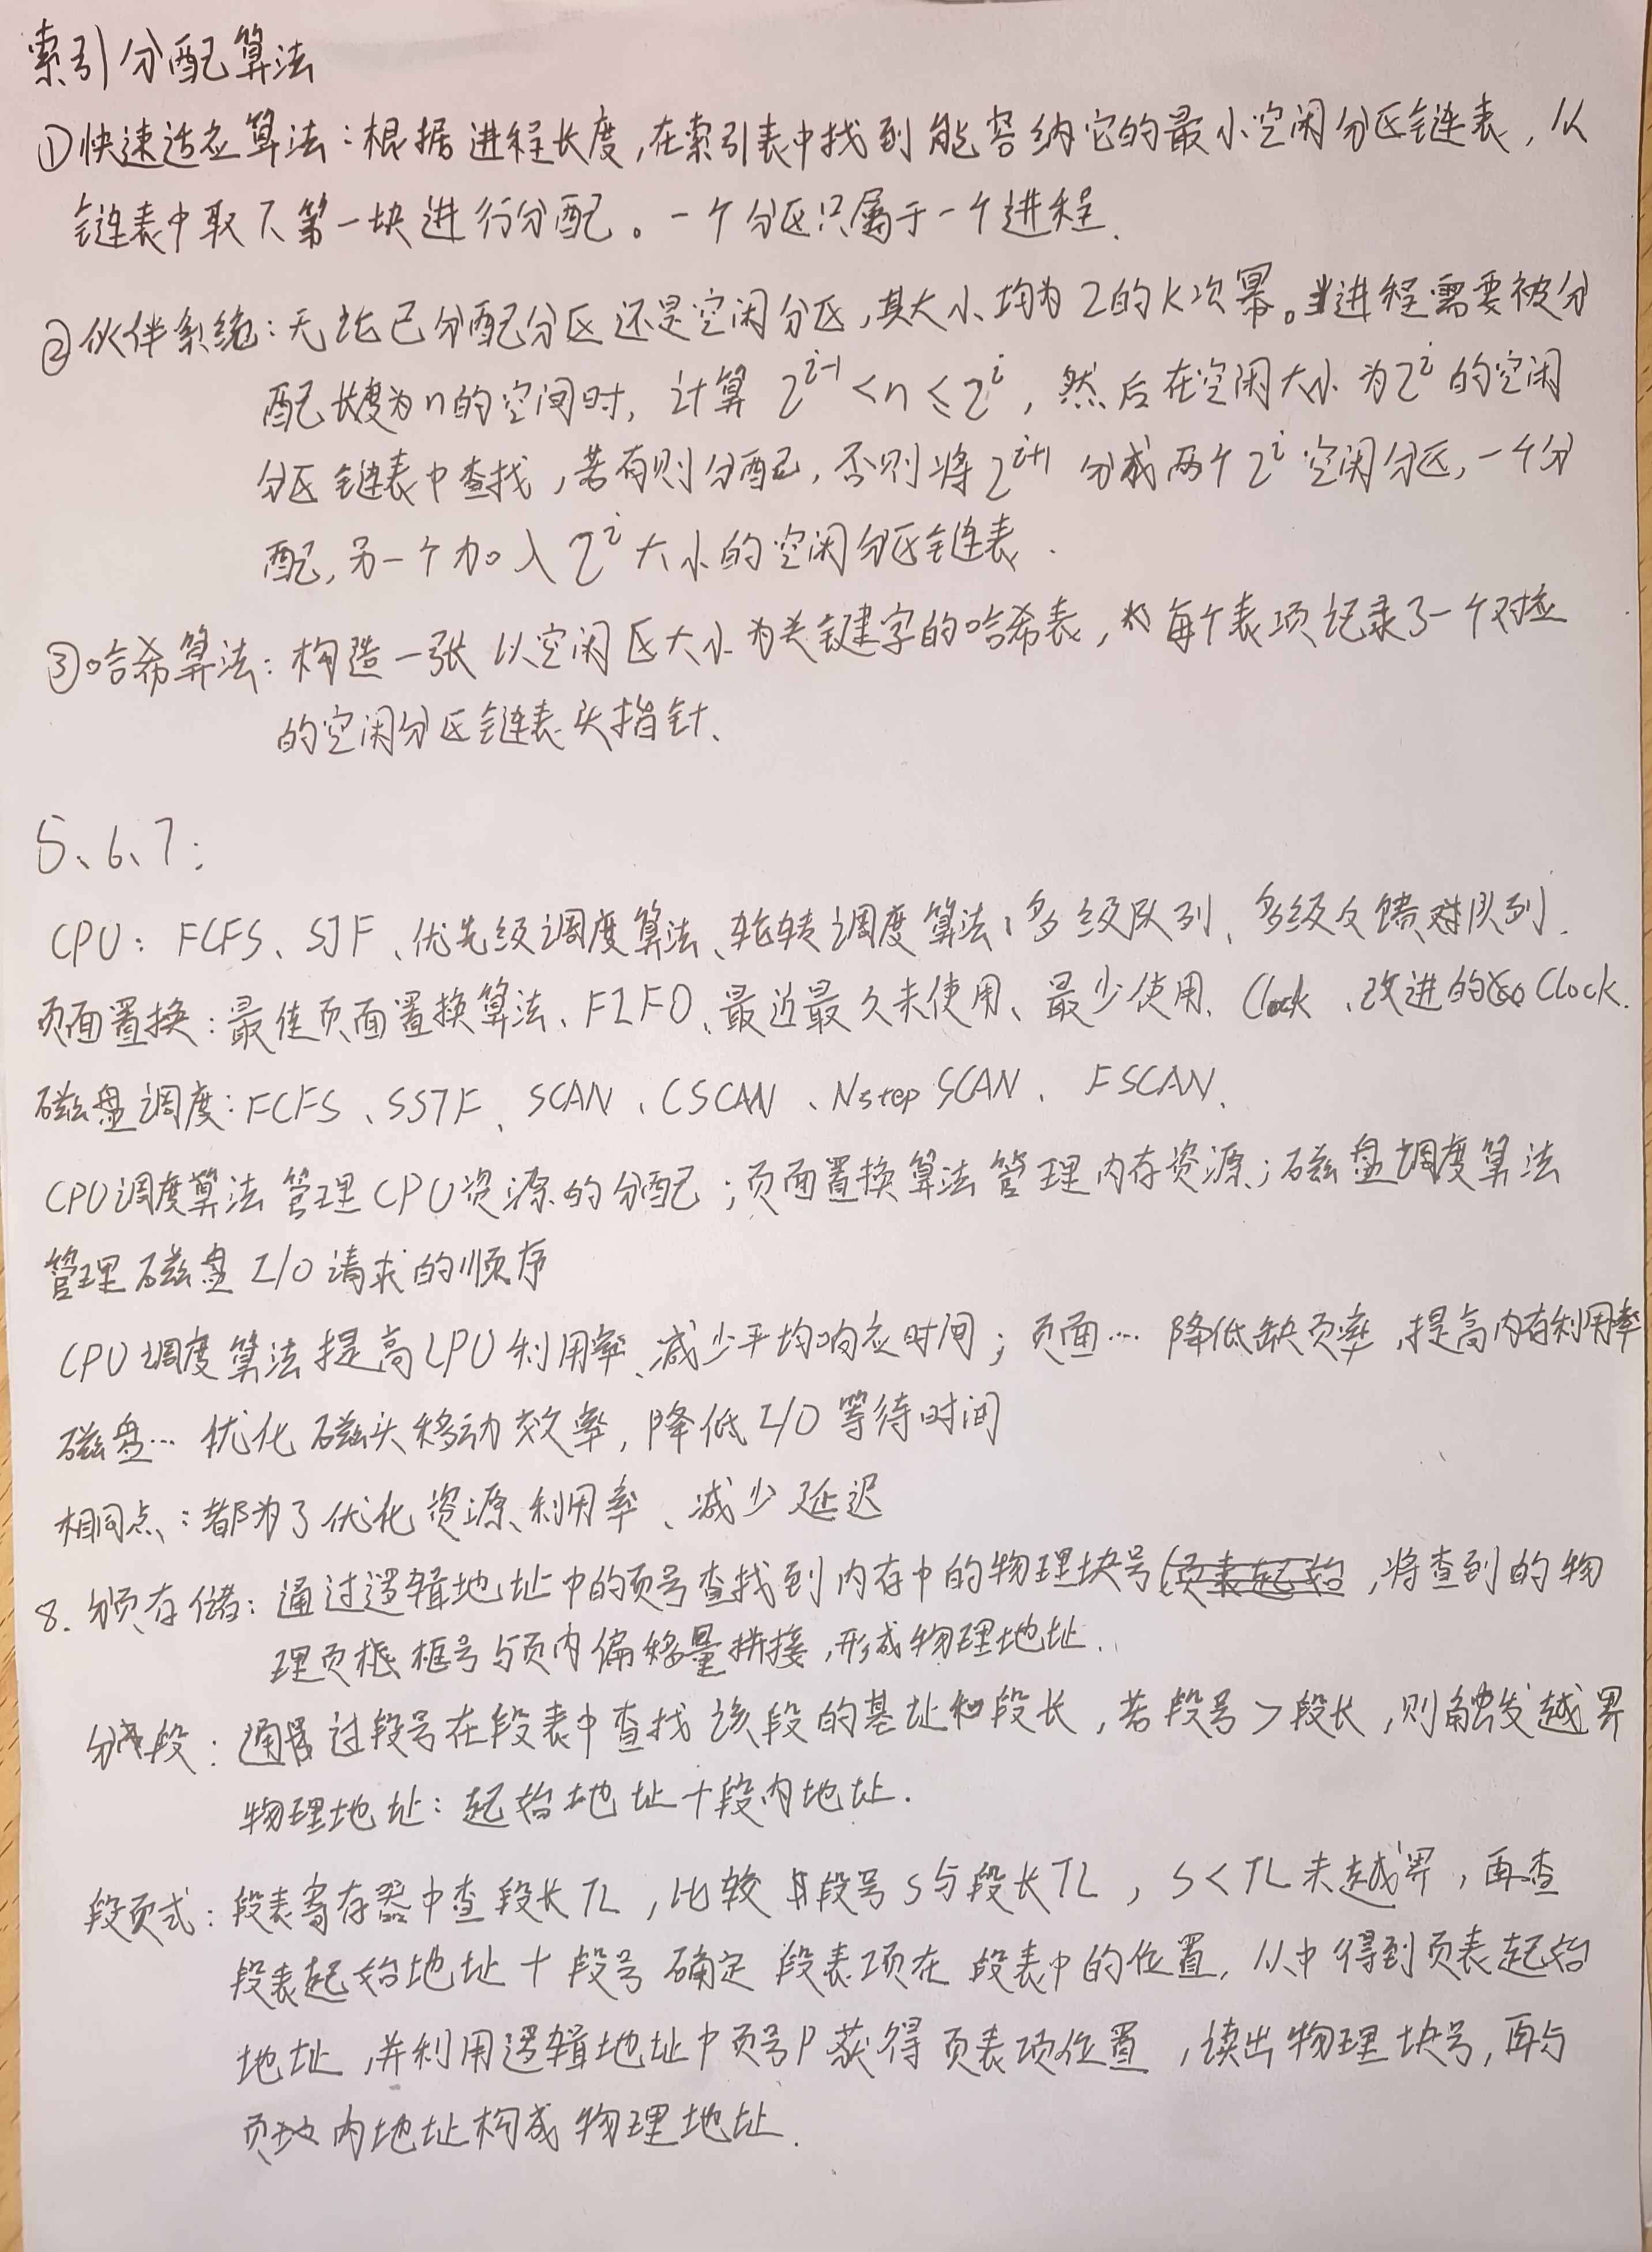 索引分配算法
①快速适应算法：根据进程长度,在索引表中找到能容纳它的最小空闲分区链表，从
链表中取下第一块进行分配。一个分区只属于一个进程.
②伙伴系统：无论已分配分区还是空闲分区,其大小均为2的K次幂。当进程需要被分
配长度为n的空间时，计算 2^{i-1} < n ≤ 2^i ，然后在空闲大小为2^i的空闲
分区链表中查找，若有则分配，否则将2^{i+1} 分成两个2^i空闲分区,一个分
配,另一个加入2^i大小的空闲分区链表.
③哈希算法：构造一张以空闲区大小为关键字的哈希表，每个表项记录了一个对应
的空闲分区链表头指针、
5、6、7：
CPU：FCFS、SJF、优先级调度算法、轮转调度算法、多级队列、多级反馈队列.
页面置换：最佳页面置换算法、FIFO、最近最久未使用、最少使用、Clock、改进的Clock.
磁盘调度：FCFS、SSTF、SCAN、CSCAN、NstepSCAN、FSCAN、
CPU调度算法管理CPU资源的分配；页面置换算法管理内存资源；磁盘调度算法
管理磁盘I/O请求的顺序
CPU调度算法提高CPU利用率、减少平均响应时间；页面… 降低缺页率,提高内存利用率
磁盘… 优化磁头移动效率，降低I/O等待时间
相同点：都为了优化资源利用率、减少延迟
8. 分页存储：通过逻辑地址中的页号查找到内存中的物理块号(页表起始，将查到的物
理页框号与页内偏移量拼接，形成物理地址.
分段：通过段号在段表中查找该段的基址和段长，若段号>段长，则触发越界
物理地址：起始地址+段内地址.
段页式：段表寄存器中查段长TL，比较段号S与段长TL，S<TL未越界，再查
段表起始地址+段号确定段表项在段表中的位置，从中得到页表起始
地址,并利用逻辑地址中页号P获得页表项位置，读出物理块号,再与
页内地址构成物理地址.